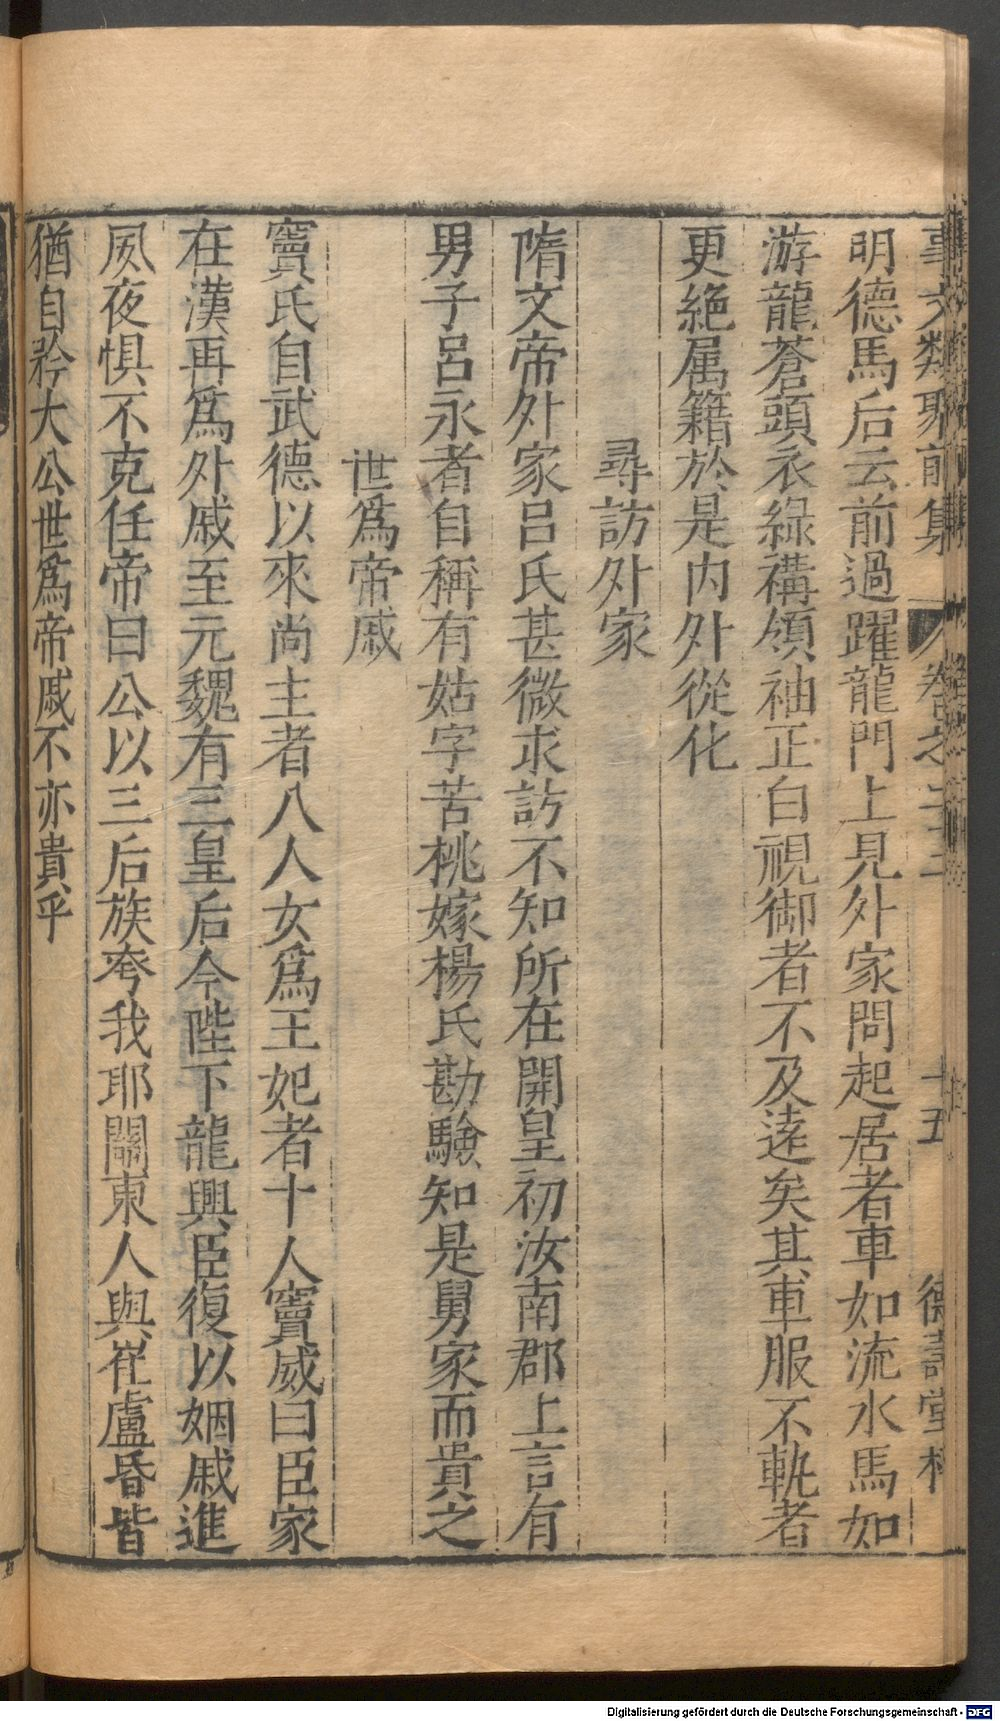 事文類聚前集 卷之二十三 十五 德壽堂梓
明德馬后云前過躍龍門上見外家問起居者車如流水馬如
游龍蒼頭衣綠褠領袖正白視御者不及遠矣其車服不軌者
更絶属籍於是内外從化
尋訪外家
隋文帝外家呂氏甚微求訪不知所在開皇初汝南郡上言有
男子呂永者自稱有姑字苦桃嫁楊氏勘驗知是舅家而貴之
世爲帝戚
竇氏自武德以來尚主者八人女爲王妃者十人竇威曰臣家
在漢再爲外戚至元魏有三皇后今陛下龍興臣復以姻戚進
夙夜惧不克任帝曰公以三后族夸我耶關東人與崔盧昏皆
猶自矜大公世爲帝戚不亦貴乎
Digitalisierung gefördert durch die Deutsche Forschungsgemeinschaft - DFG